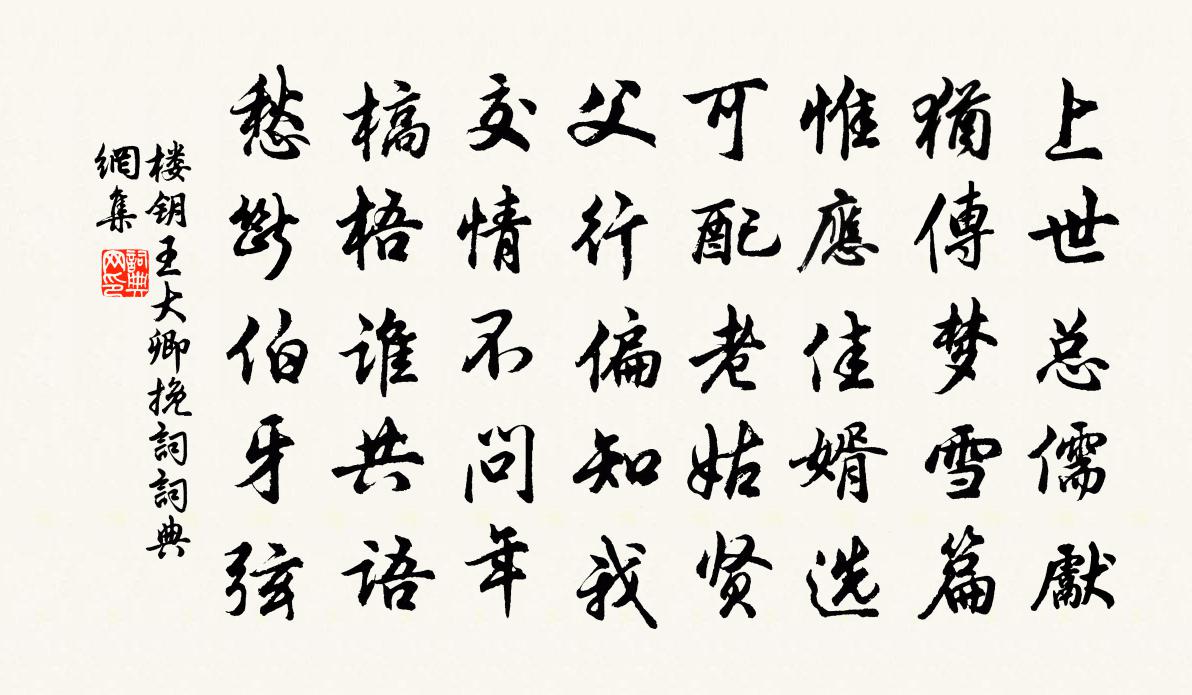 上世总儒獻
猶傳梦雪篇
惟應佳婿选
可配老姑贤
父行偏知我
交情不问年
槁梧谁共语
愁斷伯牙弦
楼钥王大卿挽詞詞典
網集
詞典网印